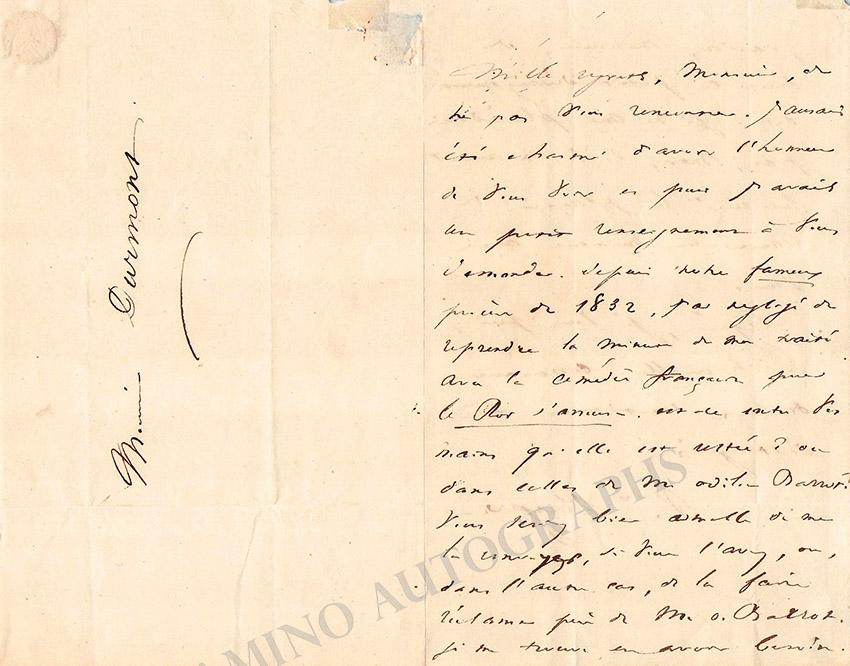 Monsieur Durmont.
Mille regrets, Monsieur, de
ne pas vous rencontrer. J'aurais
été charmé d'avoir l'honneur
de vous voir et puis j'avais
un petit renseignement à vous
demander. Depuis notre fameux
procès de 1832, j'ai négligé de
reprendre la minute de mon traité
avec la comédie française pour
le Roi s'amuse. est-ce entre vos
mains qu'elle est restée ? ou
dans celles de M. odilon Barrot ?
Vous seriez bien aimable de me
la renvoyer, si vous l'avez, ou,
dans l'autre cas, de la faire
réclamer près de M. o. Barrot.
je me trouve en avoir besoin.
TAMINO AUTOGRAPHS